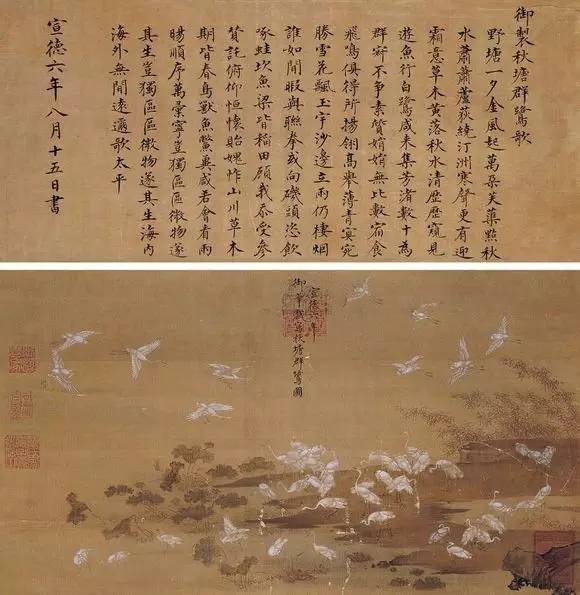 御製秋塘群鷺歌
野塘一夕金風起萬朵芙蕖點秋
水蕭蕭蘆荻繞汀洲寒聲更有迎
霜意草木黃落秋水清歷歷窺見
遊魚行白鷺咸来集芳渚數十為
群不爭素質娟娟無比數宿食
飛鳴俱得所揚翎高舉薄青冥宛
勝雪花飄玉宇沙邊立雨仍棲烟
誰如閒暇與聯拳或向磯頭恣飲
啄蛙坎魚梁皆稻田顧我忝受參
贊託俯仰恒懷貽媿怍山川草木
期皆春鳥獸魚鱉冀咸若會看雨
暘順序萬彙寧豈獨區區微物遂
其生豈獨區區微物遂其生海內
海外無間遠邇歌太平
宣德六年八月十五日書
宣德六年
御筆戲寫秋塘群鷺圖